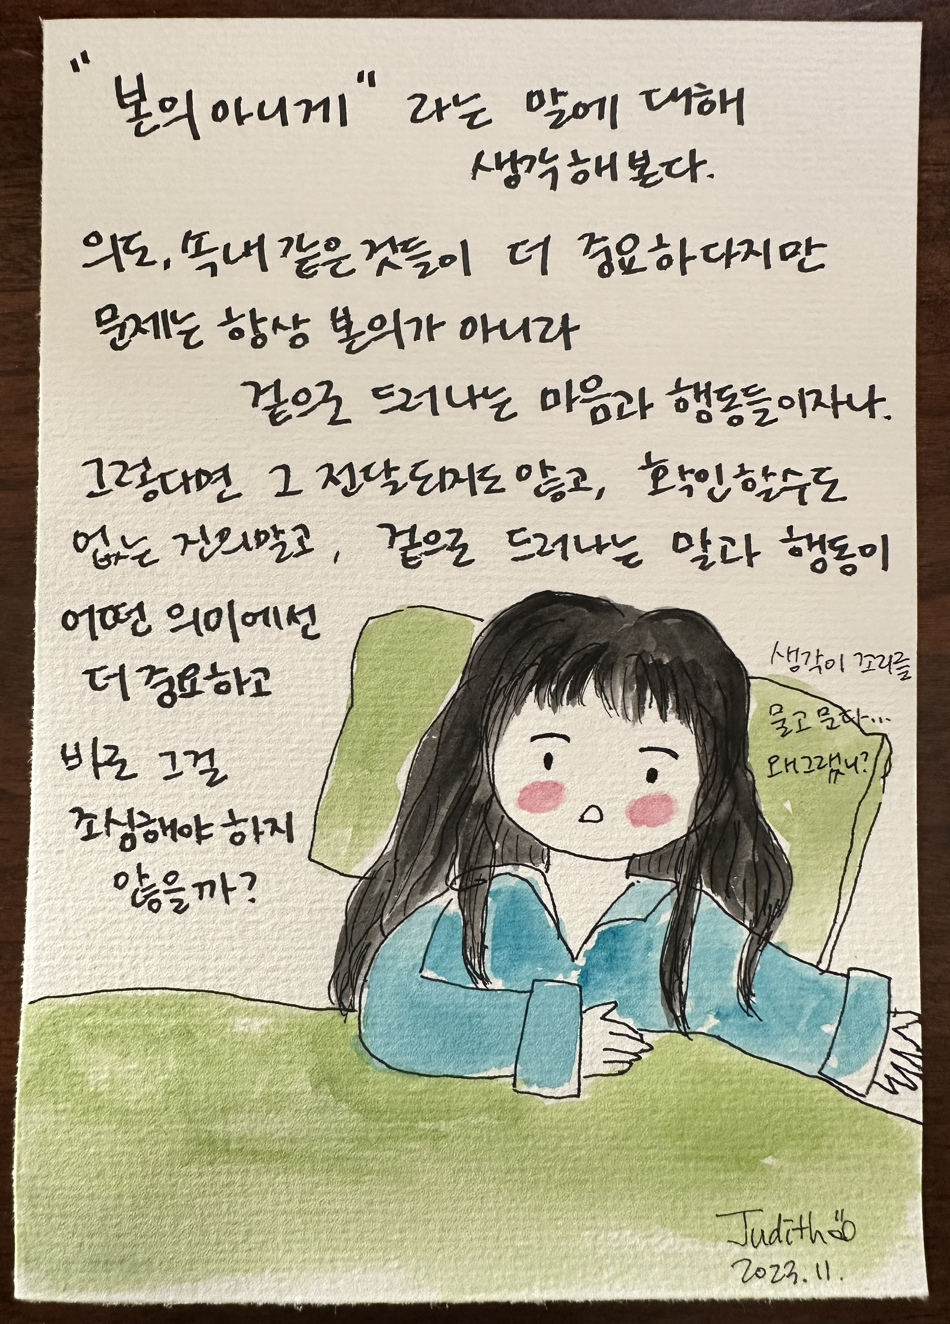 "본의 아니게" 라는 말에 대해
생각해본다.
의도, 속내 같은것들이 더 중요하다지만
문제는 항상 본의가 아니라
겉으로 드러나는 마음과 행동들이자나.
그렇다면 그 전달되지도 않고, 확인할수도
없는 진의말고, 겉으로 드러나는 말과 행동이
어떤 의미에선
더 중요하고
바로 그걸
조심해야 하지
않을까?
생각이 꼬리를
물고 문다...
왜그랬니?
Judith
2023.11.